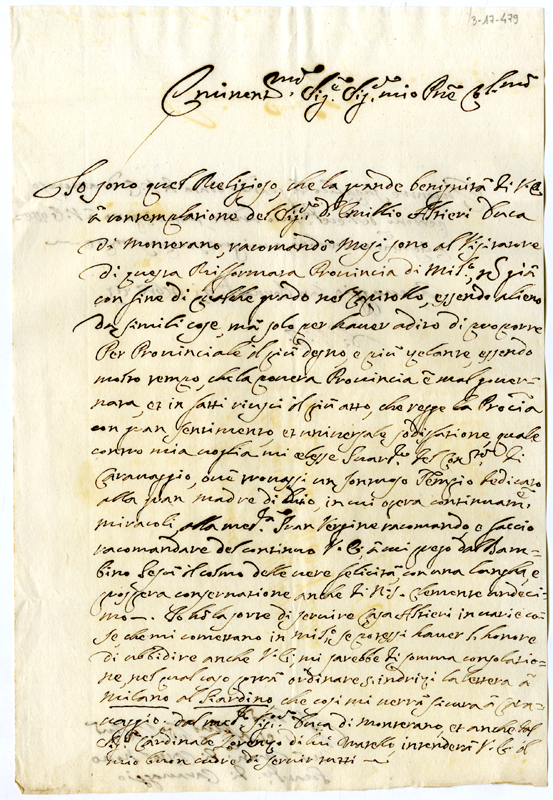 3-17-479
Eminent.mo Sig.e Sig.e mio Pñe Col.mo
Io sono quel Religioso, che la grande benignità di V.E.
à contemplatione del Sig.r D. Emillio Altieri Duca
di Monterano, racomandò mesi sono al Visitatore
di questa Rifformata Provincia di Mil.o, nõ già
con fine di qualche grado nel Capitollo, essendo alieno
da simili cose, mà solo per haver adito di proporre
Per Provinciale il più degno, e più zelante, essendo
molto tempo, che la povera Provincia è mal gover-
nata, et in fatti riuscì il più atto, che regge la Procia
con gran sentimento, et universale sodisfatione quale
contro mia voglia mi elesse Guard.o del di
Caravaggio, ove trovassi un sontuoso Tempio dedicato
alla gran Madre di Dio, in cui opera continuam.e
miracoli, alla med.a Gran Vergine racomando, e faccio
racomandare del continuo V.E., à cui prego dal Bam-
bino Gesù il colmo delle vere felicità, con una longa, e
prospera conservatione anche di N.S. Clemente undeci-
mo. Io hò la sorte di servire Casa Altieri in varie co-
se che mi comettano in Mil.o, se potessi haver l'honore
di ubbidire anche V.E., mi sarebbe di somma consolatio-
ne, nel qual caso potrà ordinare s'indrizi la lettera à
Milano al Giardino, che così mi verrà sicura à Cara-
vaggio. dal med.o Sig.r Duca di Monterano, et anche dal
Sig.r Cardinale Lorenzo di lui fratello, intenderà V.E. il
mio buon cuore di servir tutti